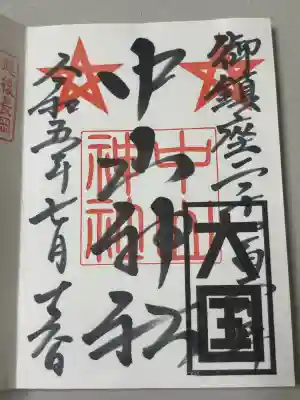 御鎮座二千百
中山神社
中山神社
大国
令和五年七月